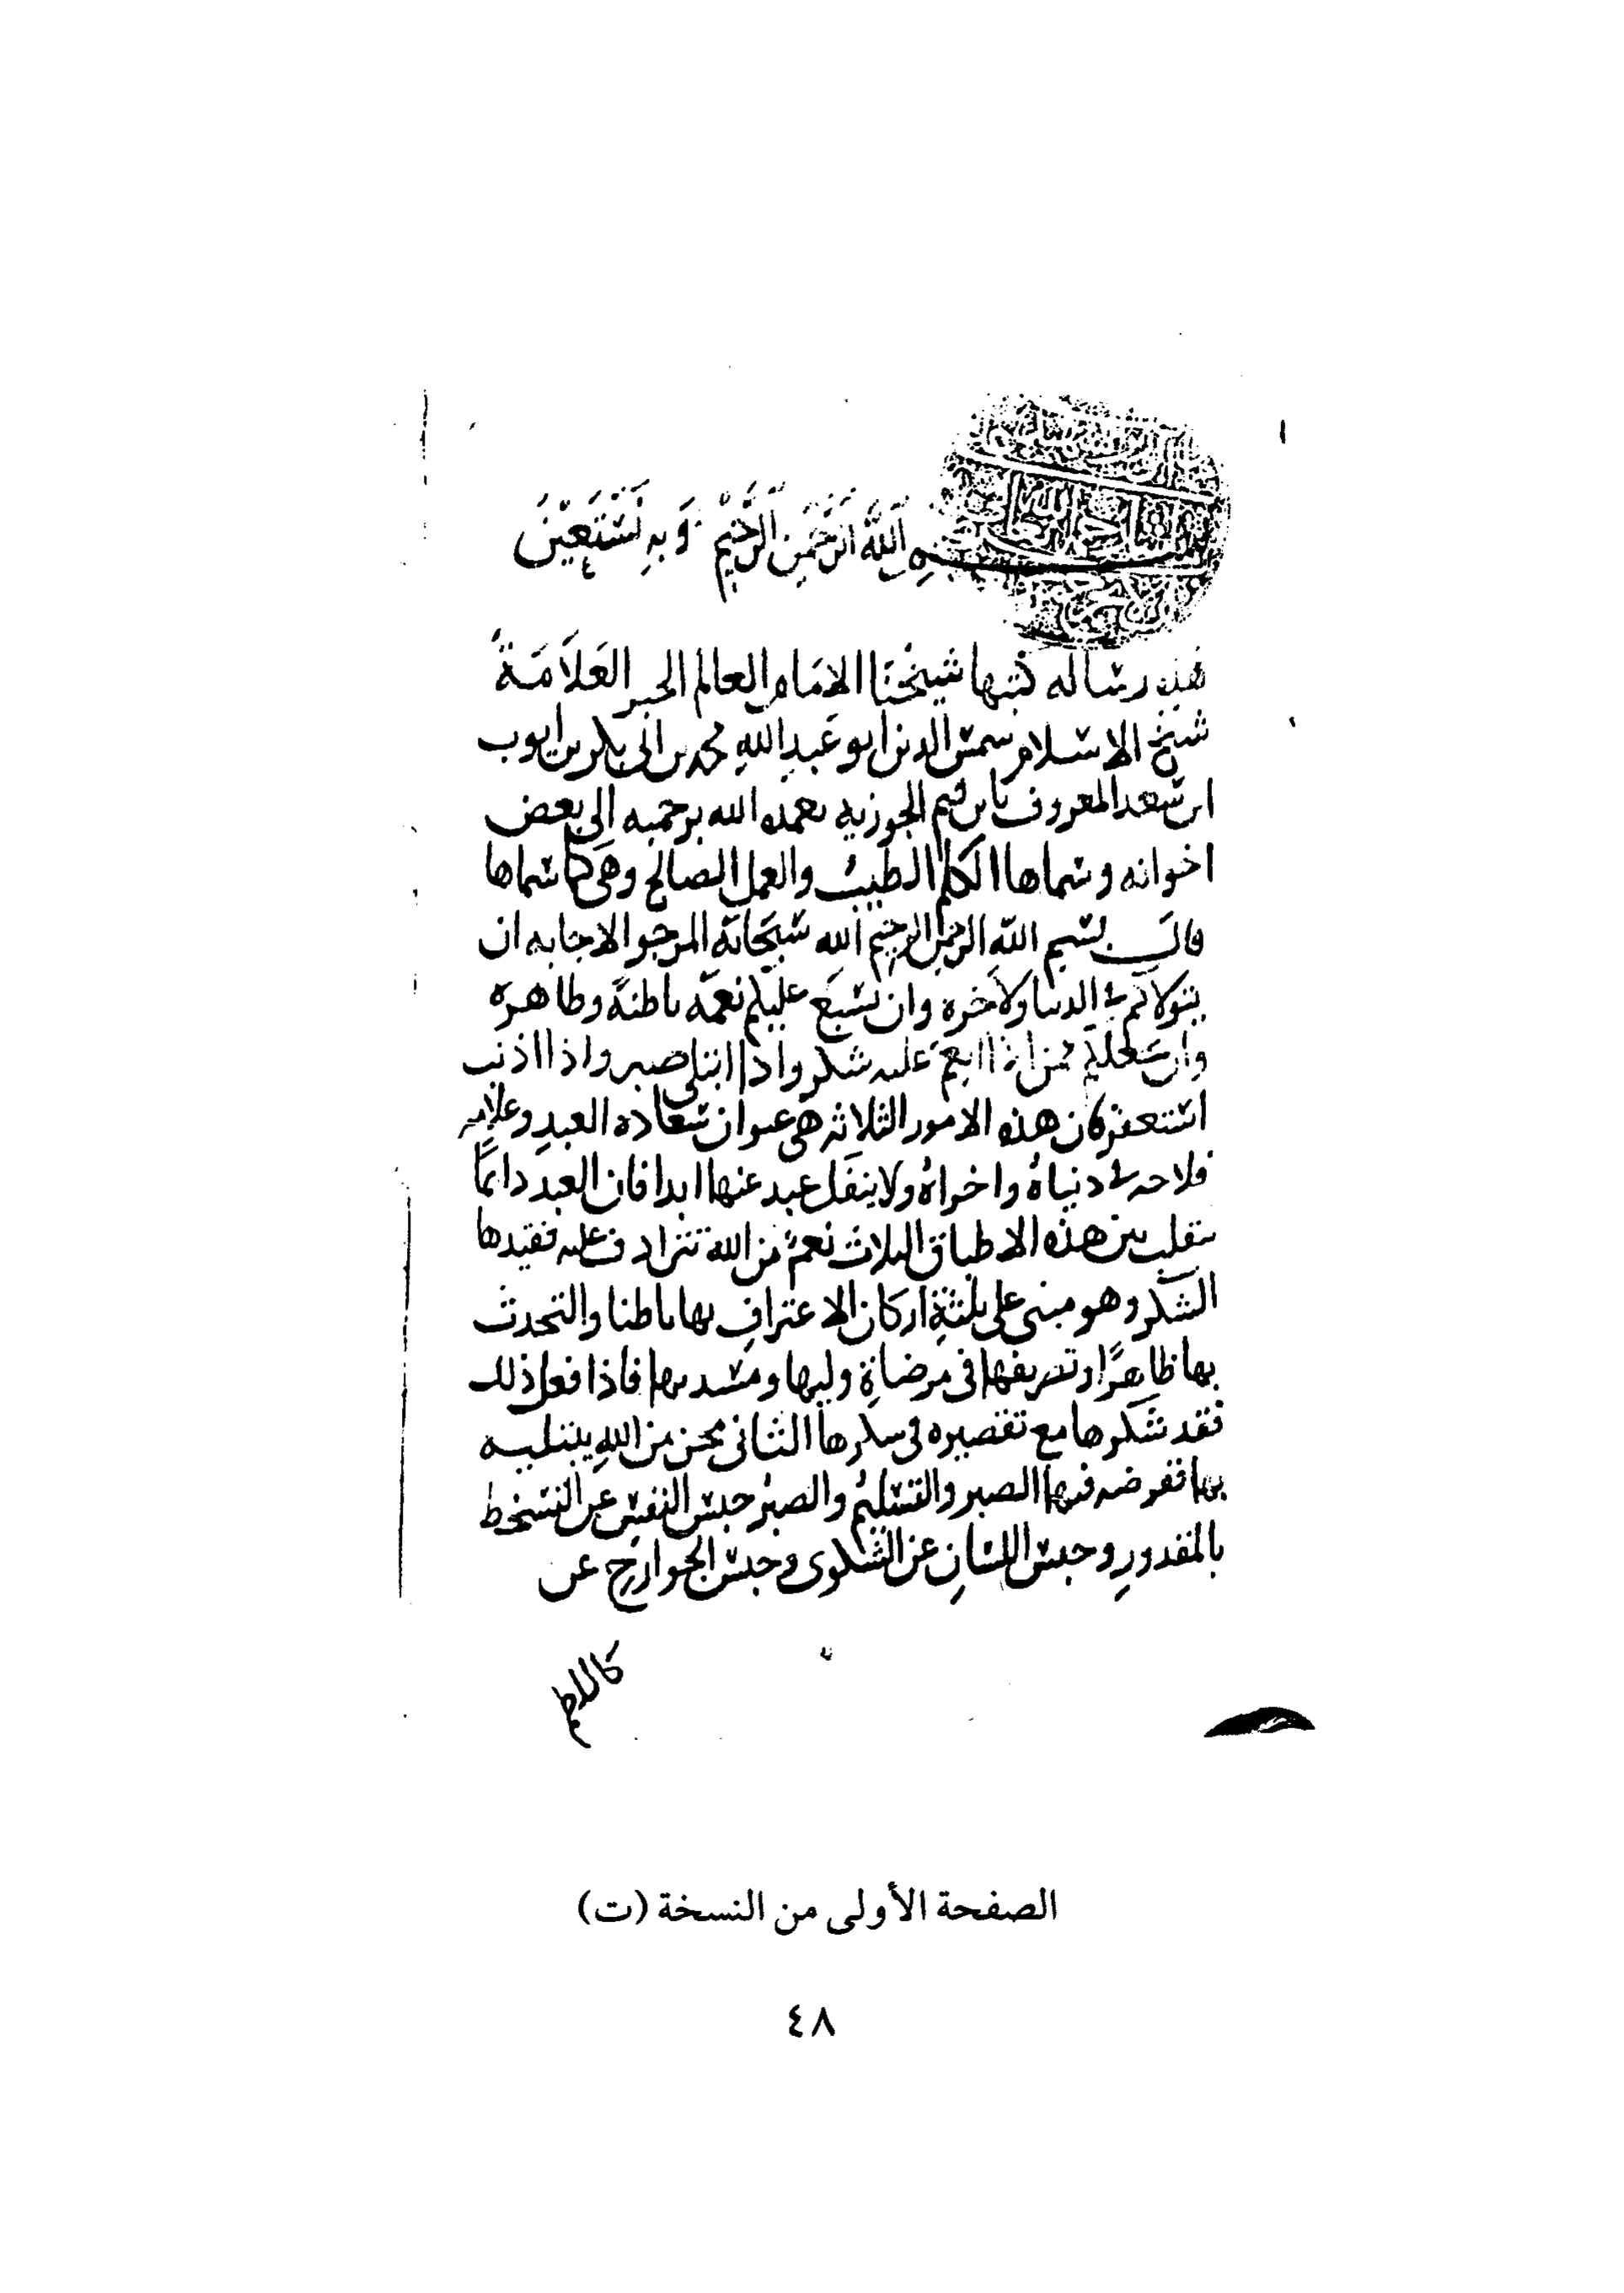 بسم الله الرحمن الرحيم وبه نستعين
هذه رساله كتبها شيخنا الامام العالم الحبر العلامة
شيخ الاسلام شمس الدين ابو عبد الله محمد بن ابي بكر بن ايوب
ابن سعد المعروف بابن قيم الجوزيه تغمده الله برحمته الى بعض
اخوانه وسماها الكلم الطيب والعمل الصالح وهي كما سماها
قال بسم الله الرحمن الرحيم الله سبحانه المرجو الاجابه ان
يتولاكم في الدنيا ولاخره وان يسبغ عليكم نعمه باطنة وظاهرة
وان يجعلكم ممن اذا انعم عليه شكر واذا ابتلي صبر واذا اذنب
استغفر فان هذه الامور الثلاثه هي عنوان سعاده العبد وعلامه
فلاحه في دنياه واخراه ولا ينفك عبد عنها ابدا فان العبد دائما
يتقلب بين هذه الاطباق الثلاث نعم من الله تترادف عليه فقيدها
الشكر وهو مبني على ثلثة اركان الاعتراف بها باطنا والتحدث
بها ظاهرا وتصريفها في مرضاة وليها ومسديها فاذا فعل ذلك
فقد شكرها مع تقصيره في شكرها الثاني محن من الله يبتليه
بها ففرضه فيها الصبر والتسليم والصبر حبس النفس عن التسخط
بالمقدور وحبس اللسان عن الشكوى وحبس الجوارح عن
كاللطم
الصفحة الأولى من النسخة (ت)
٤٨